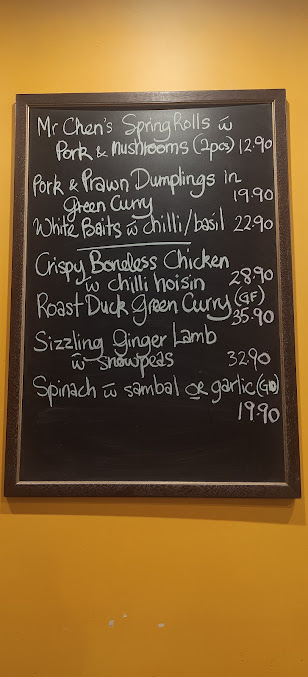 Mr Chen's Spring Rolls w̄
Pork & Mushrooms (2pcs) 12.90
Pork & Prawn Dumplings in
Green Curry 19.90
White Baits w̄ chilli/basil 22.90
Crispy Boneless Chicken
w̄ chilli hoisin 28.90
Roast Duck Green Curry (GF)
35.90
Sizzling Ginger Lamb
w̄ snowpeas 32.90
Spinach w̄ sambal or garlic
19.90